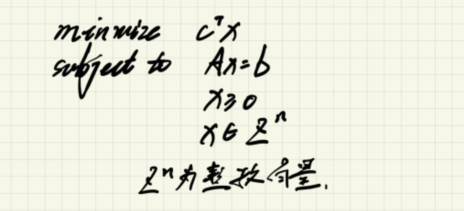 minimize cᵀx
subject to Ax=b
x≥0
x∈Zⁿ
Zⁿ为整数向量.